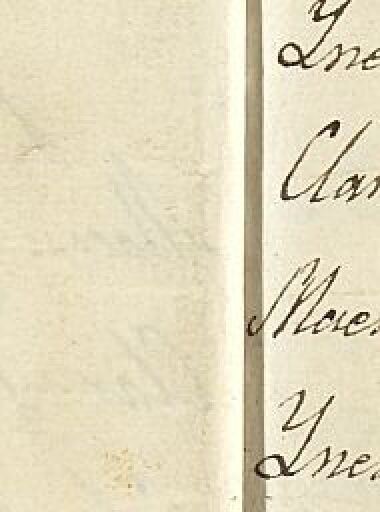 Yne
Clar
Maes
Ynes